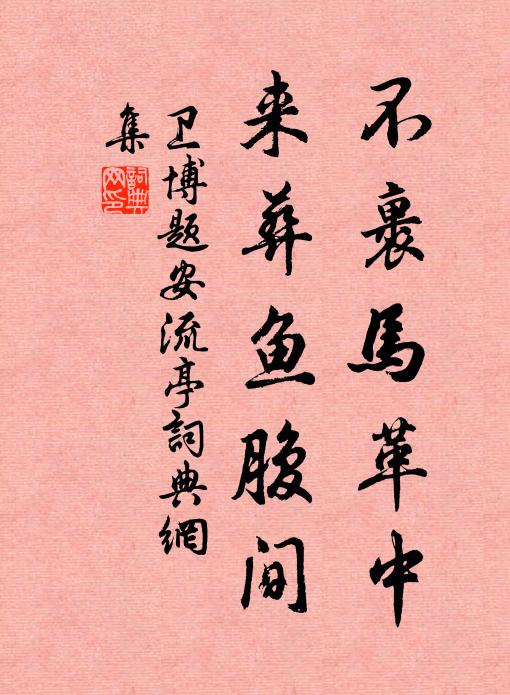 不裹馬革中
来葬鱼腹间
卫博题安流亭詞典網
集
詞典网印